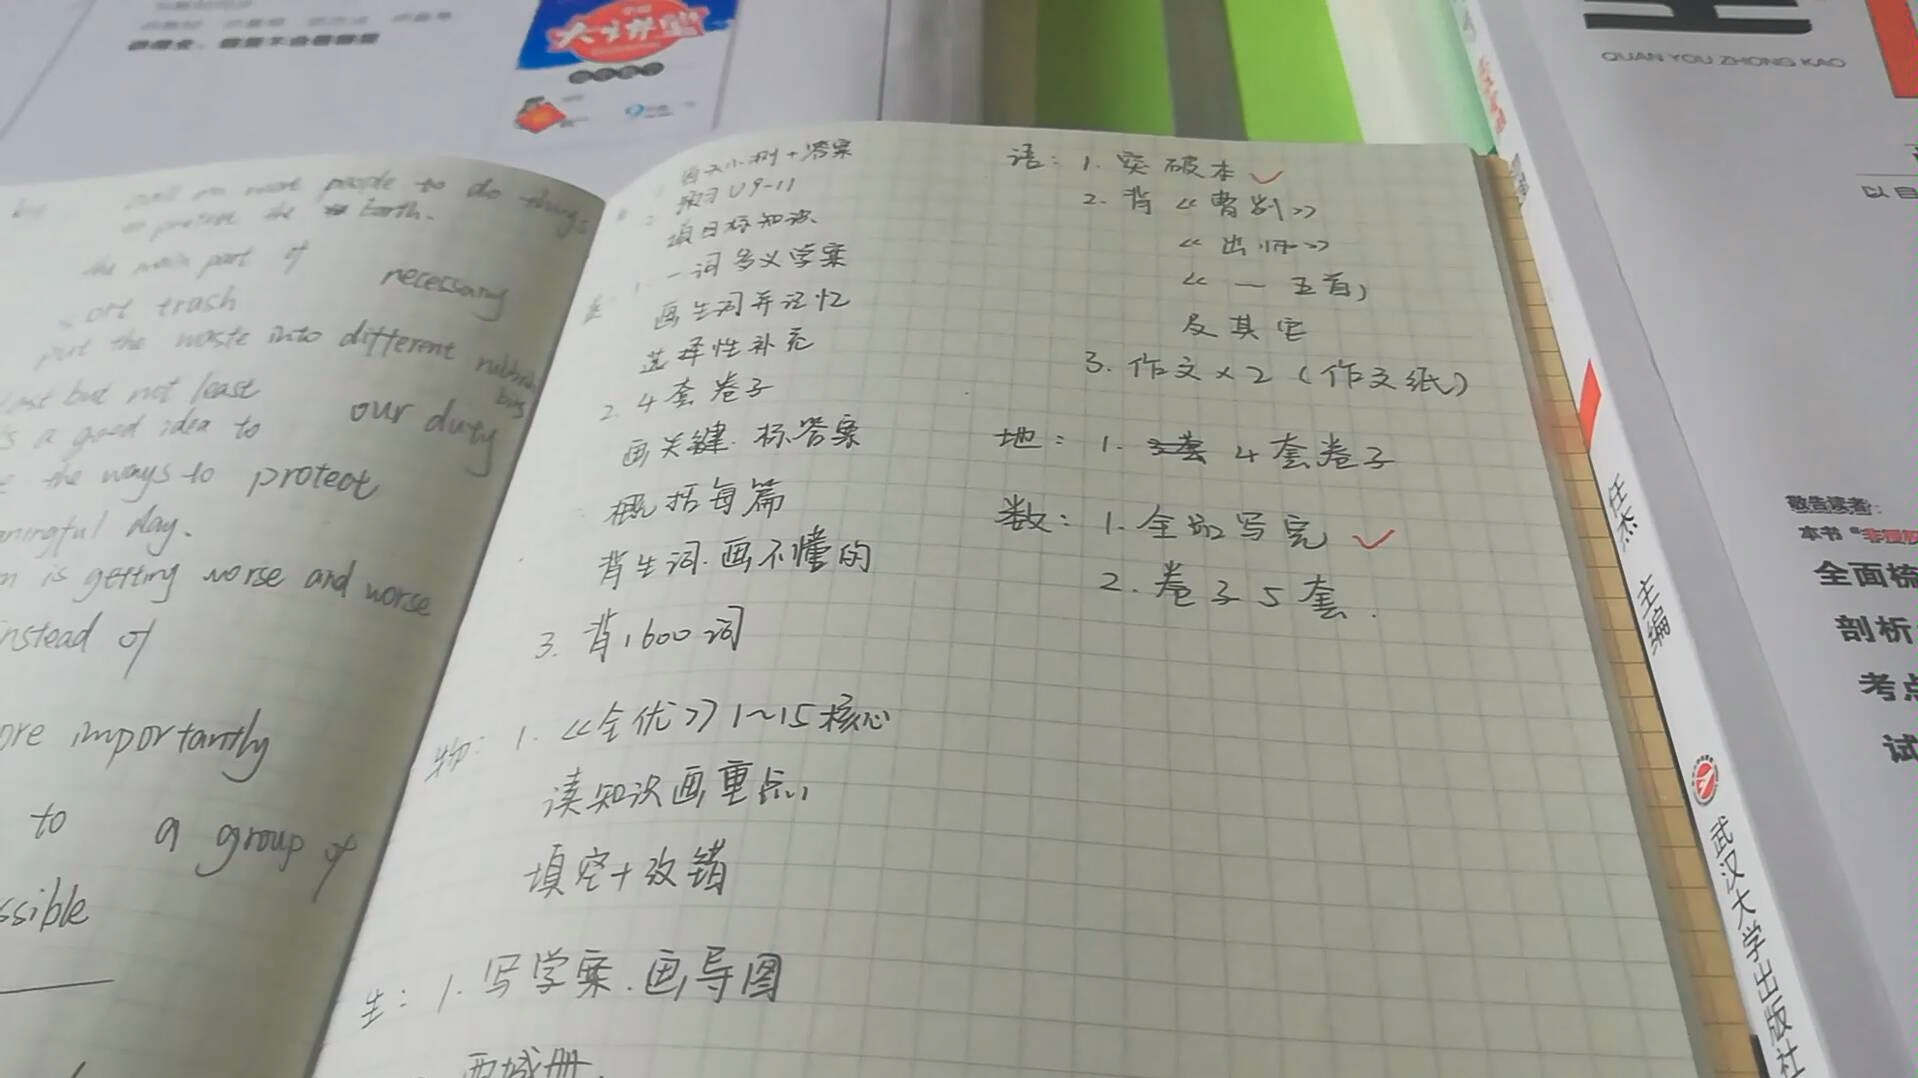 people to do things
to protect the Earth.
the main part of
necessary
ort trash
put the waste into different rubbish
bins
last but not least
our duty
's a good idea to
the ways to protect
aningful day.
n is getting worse and worse
instead of
ore importantly
to a group of
ssible
预习U9-11
填目标知识
一词多义学案
画生词并记忆
选择性补充
2. 4套卷子
画关键.标答案
概括每篇
背生词.画不懂的
3. 背1600词
物: 1. 《全优》1~15核心
读知识画重点,
填空+改错
生: 1. 写学案.画导图
西城册.
语: 1. 突破本 ✓
2. 背《曹刿》
《出师》
《一五首》
及其它
3. 作文×2(作文纸)
地: 1. 4套卷子
数: 1. 全部写完 ✓
2. 卷子5套.
QUAN YOU ZHONG KAO
以自
敬告读者:
本书"非授权
全面梳
剖析
考点
试
任杰 主编
武汉大学出版社